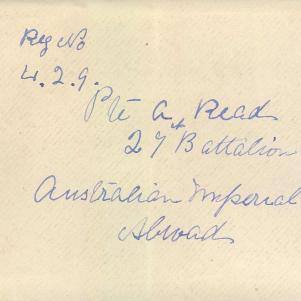 Reg No
4.2.9.
Pte A Read
27 Battalion
Australian Imperial
Abroad